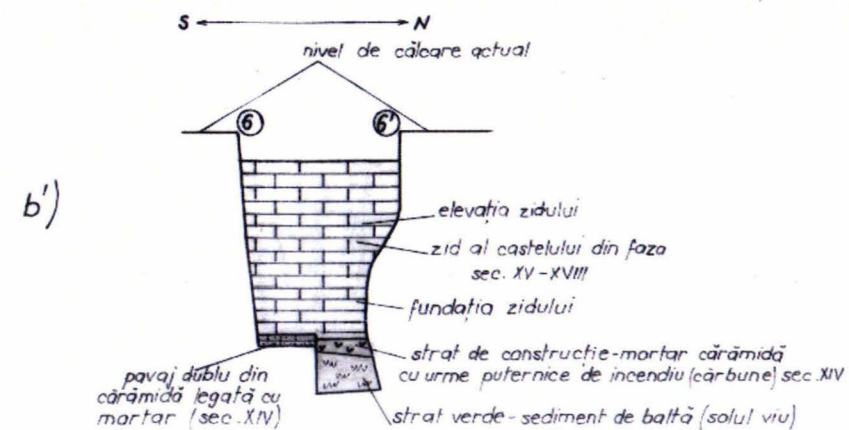 S N
nivel de călcare actual
6 6'
b')
elevația zidului
zid al castelului din faza
sec. XV-XVIII
fundația zidului
strat de construcție-mortar cărămidă
cu urme puternice de incendiu (cărbune) sec. XIV
pavaj dublu din
cărămidă legată cu
mortar (sec. XIV)
strat verde-sediment de baltă (solul viu)